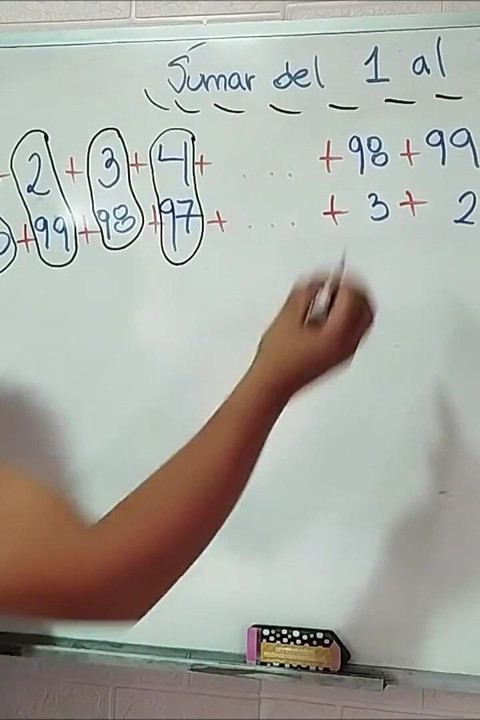 Sumar del 1 al
+ 2 + 3 + 4 + .... + 98 + 99
+ 99 + 98 + 97 + .... + 3 + 2